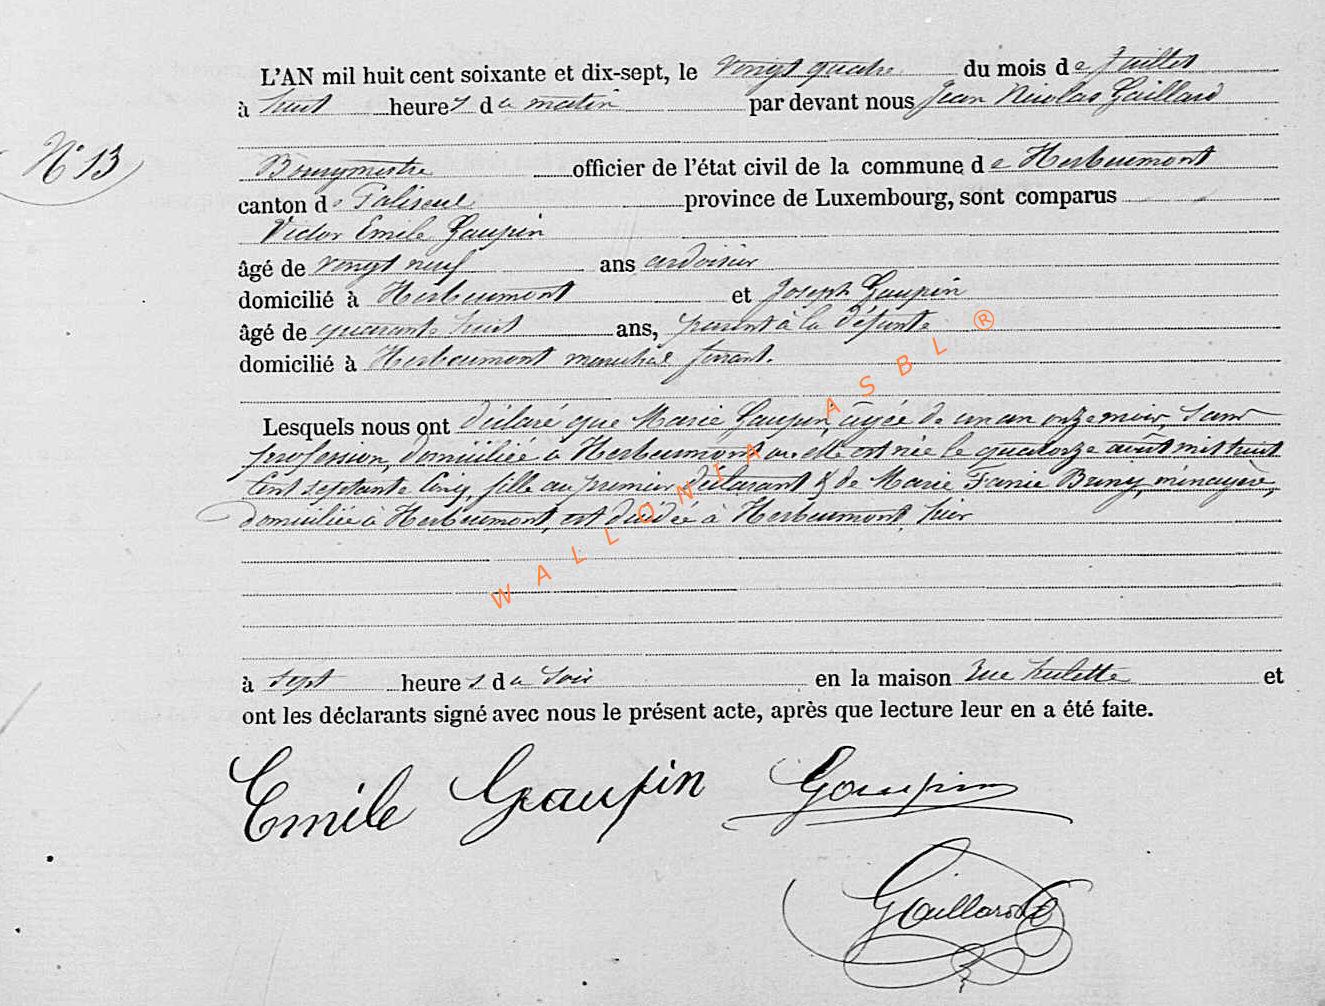 L'AN mil huit cent soixante et dix-sept, le vingt quatre du mois de Juillet
à huit heures du matin par devant nous Jean Nicolas Gaillard
N° 13
Bourgmestre officier de l'état civil de la commune de Herbeumont
canton de Paliseul province de Luxembourg, sont comparus
Victor Emile Gaupin
âgé de vingt neuf ans ardoisier
domicilié à Herbeumont et Joseph Gaupin
âgé de quarante huit ans, parent à la défunte
domicilié à Herbeumont marechal ferrant.
Lesquels nous ont déclaré que Marie Gaupin, âgée de un an onze mois, sans
profession, domiciliée à Herbeumont où elle est née le quatorze août mil huit
cent septante cinq, fille au premier déclarant & de Marie Fanie Briny, ménagère,
domiciliée à Herbeumont, est décédée à Herbeumont, hier
à sept heures du soir en la maison Rue hulette et
ont les déclarants signé avec nous le présent acte, après que lecture leur en a été faite.
Emile Gaupin Gaupin
Gaillard
WALLONIA ASBL ®